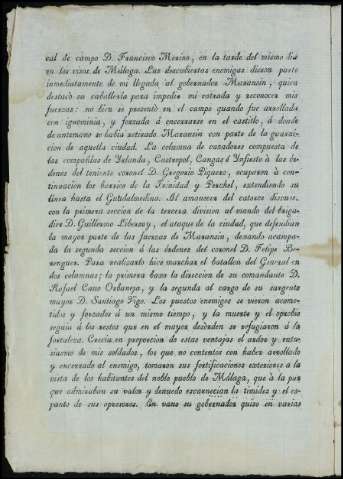 cal de campo D. Francisco Merino, en la tarde del mismo dia
en los rizos de Málaga. Las descubiertas enemigas dieron parte
inmediatamente de mi llegada al gobernador Maransin, quien
destacó su caballería para impedir mi entrada y reconocer mis
fuerzas: no bien se presentó en el campo quando fue arrollada
con ignominia, y forzada á encerrarse en el castillo, á donde
de antemano se habia retirado Maransin con parte de la guarni-
cion de aquella ciudad. La columna de cazadores compuesta de
las compañías de Irlanda, Castropol, Cangas é Infiesto á las ór-
denes del teniente coronel D. Gregorio Piquero, ocuparon á con-
tinuacion los barrios de la Trinidad y Perchel, extendiendo su
linea hasta el Guadalmedina. Al amanecer del catorce dispuse,
con la primera seccion de la tercera division al mando del briga-
dier D. Guillermo Liberzay, el ataque de la ciudad, que defendian
la mayor parte de las fuerzas de Maransin, dexando acampa-
da la segunda seccion á las órdenes del coronel D. Felipe Be-
renguer. Para realizarlo hice marchar el batallon del General en
dos columnas; la primera baxo la direccion de su comandante D.
Rafael Cano Orbaneja, y la segunda al cargo de su sargento
mayor D. Santiago Vigo. Los puestos enemigos se vieron acome-
tidos y forzados á un mismo tiempo, y la muerte y el oprobio
seguia á los restos que en el mayor desórden se refugiaron á la
fortaleza. Crecia en proporcion de estas ventajas el ardor y entu-
siasmo de mis soldados, los que no contentos con haber arrollado
y encerrado al enemigo, tomaron sus fortificaciones exteriores á la
vista de los habitantes del noble pueblo de Málaga, que á la par
que admiraban su valor y denuedo escarnecian la timidez y el es-
panto de sus opresores. En vano su gobernador quiso en varias